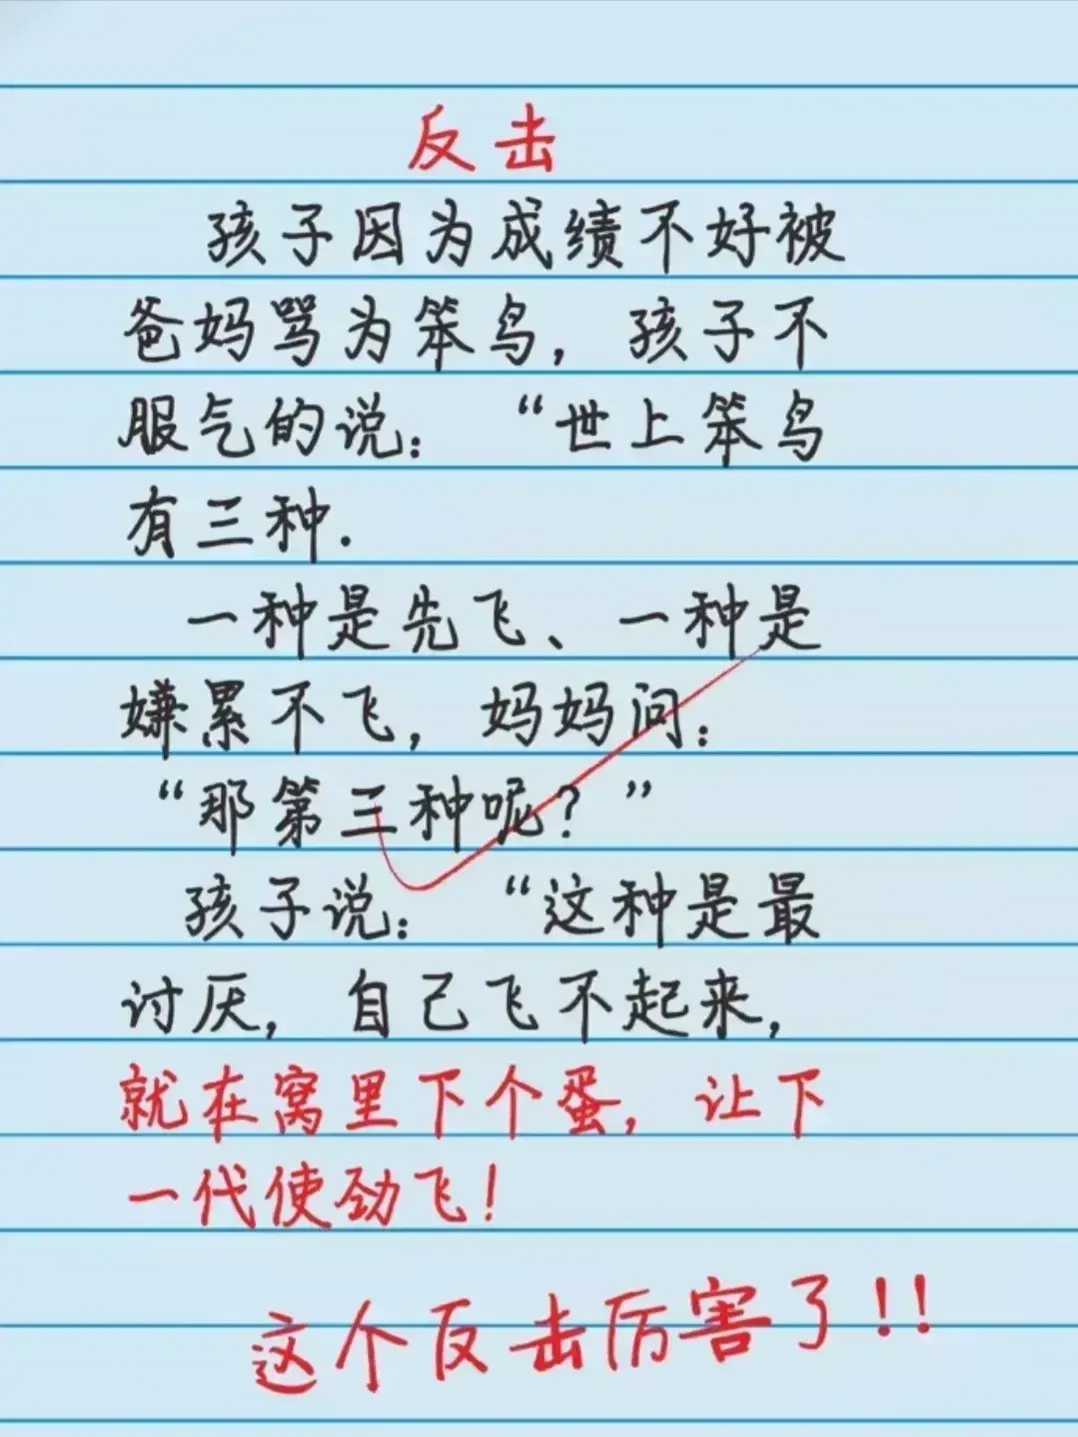 反击
孩子因为成绩不好被
爸妈骂为笨鸟，孩子不
服气的说：“世上笨鸟
有三种.
一种是先飞、一种是
嫌累不飞，妈妈问：
“那第三种呢？”
孩子说：“这种是最
讨厌，自己飞不起来，
就在窝里下个蛋，让下
一代使劲飞！
这个反击厉害了!!